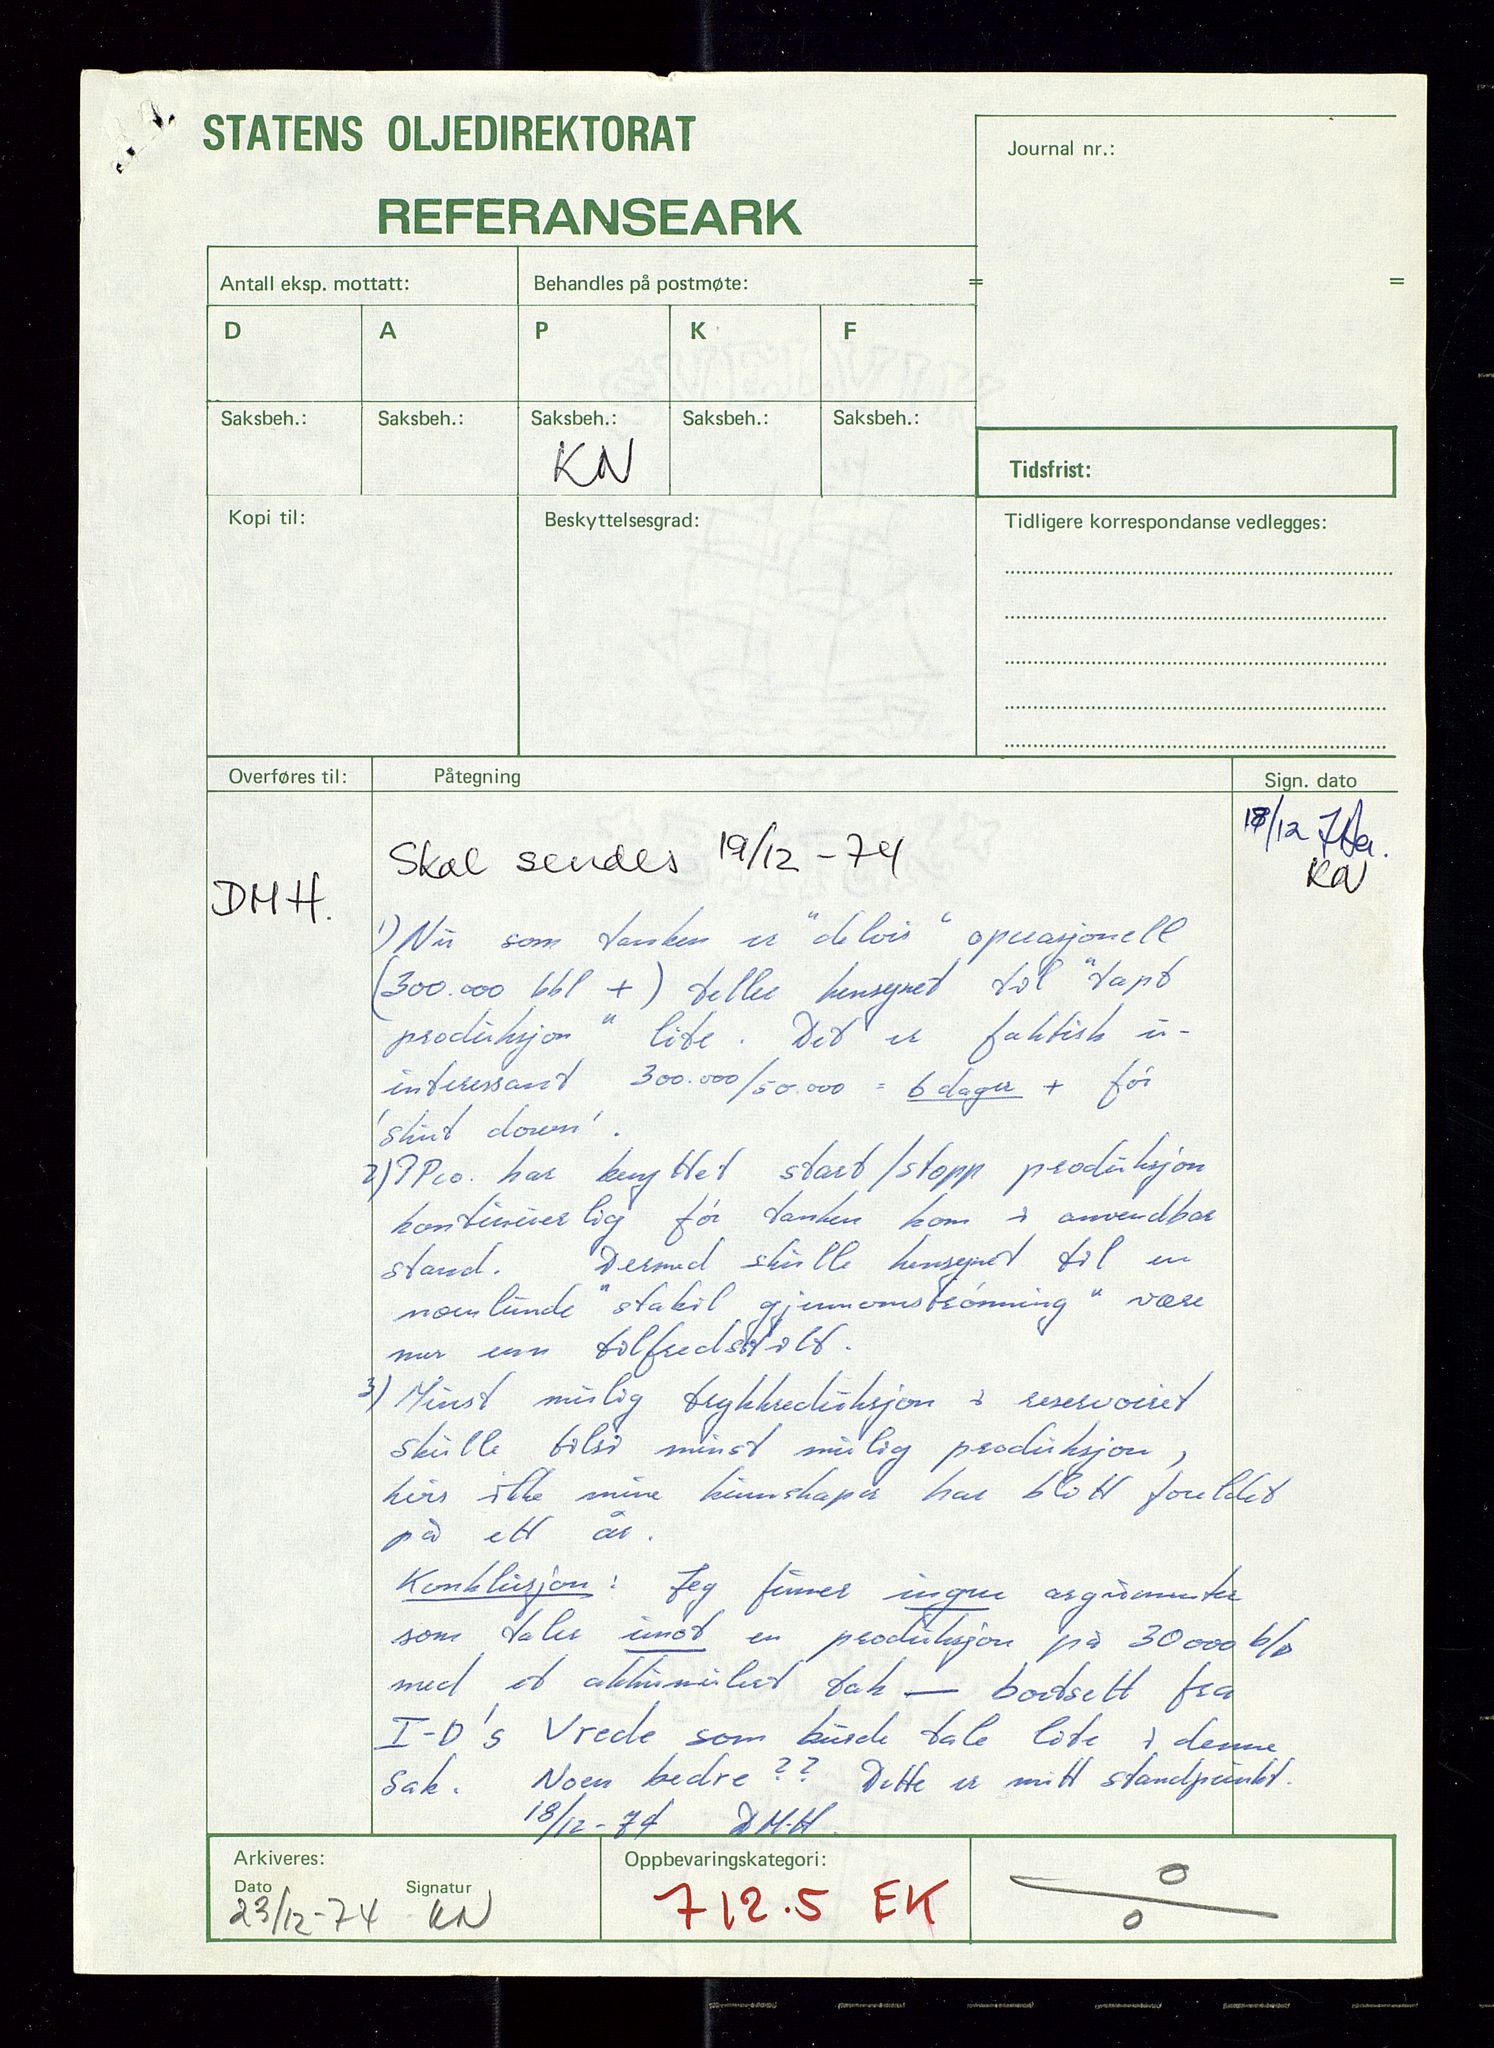 STATENS OLJEDIREKTORAT
REFERANSEARK
Journal nr.:
Antall eksp. mottatt:
Behandles på postmøte:
=
=
D
A
P
K
F
Saksbeh.:
Saksbeh.:
Saksbeh.:
Saksbeh.:
Saksbeh.:
KN
Tidsfrist:
Kopi til:
Beskyttelsesgrad:
Tidligere korrespondanse vedlegges:
Overføres til:
Påtegning
Sign. dato
18/12
KN
Skal sendes 19/12-74
DMH.
1) Nu som tanken er "delvis" operasjonell
(300.000 bbl +) teller hensynet til "tapt
produksjon" lite. Det er faktisk u-
interessant 300.000/50.000 = 6 dager + før
'shut down'.
2) PPco. har benyttet start/stopp produksjon
kontinuerlig før tanken kom i anvendbar
stand. Dermed skulle hensynet til en
noenlunde "stabil gjennomstrømning" være
mer enn tilfredsstilt.
3) Minst mulig trykkreduksjon i reservoiret
skulle tilsi minst mulig produksjon,
hvis ikke mine kunnskaper har blitt foreldet
på ett år.
Konklusjon: Jeg finner ingen argumenter
som taler imot en produksjon på 30000 b/D
med et akkumulert tak — bortsett fra
I-D's Vrede som burde tale lite i denne
Sak. Noen bedre?? Dette er mitt standpunkt.
18/12-74 DM-H.
Arkiveres:
Dato
Signatur
23/12-74 KN
Oppbevaringskategori:
712.5 EK